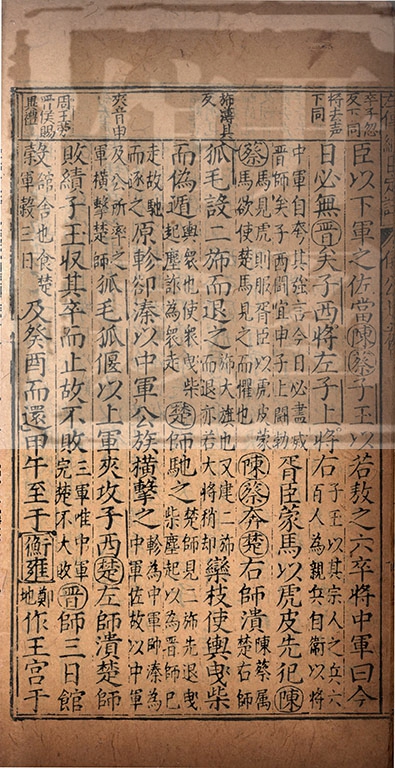 卒子忽
反下同
臣以下軍之佐當陳蔡子玉以若敖之六卒將中軍曰今
將去聲
下同
日必無晉矣子西將左子上將右子玉以其宗人之兵六百人為親兵自衛以將
中軍自夸其強言今日必盡滅晉師矣子西鬭宜申子上鬭勃胥臣蒙馬以虎皮先犯陳
蔡馬見虎則服胥臣以虎皮蒙馬欲使楚馬見之而懼也陳蔡奔楚右師潰陳蔡屬楚右師
旆薄貝
反
狐毛設二旆而退之旆大旗也又建二旆而退亦若大將稍却欒枝使輿曳柴
而偽遁輿衆也使衆曳柴起塵詐為衆走楚師馳之楚師見二旆先退曳柴塵起以為晉師已
走故馳而逐之原軫郤溱以中軍公族橫擊之軫為中軍帥溱為中軍佐故以中軍
夾音甲
及公所率之軍橫擊楚師狐毛狐偃以上軍夾攻子西楚左師潰楚師
敗績子玉收其卒而止故不敗三軍惟中軍完楚不大敗晉師三日館
晉侯賜
穀館舍也食楚軍穀三日及癸酉而還甲午至于衡雍鄭地作王宮于